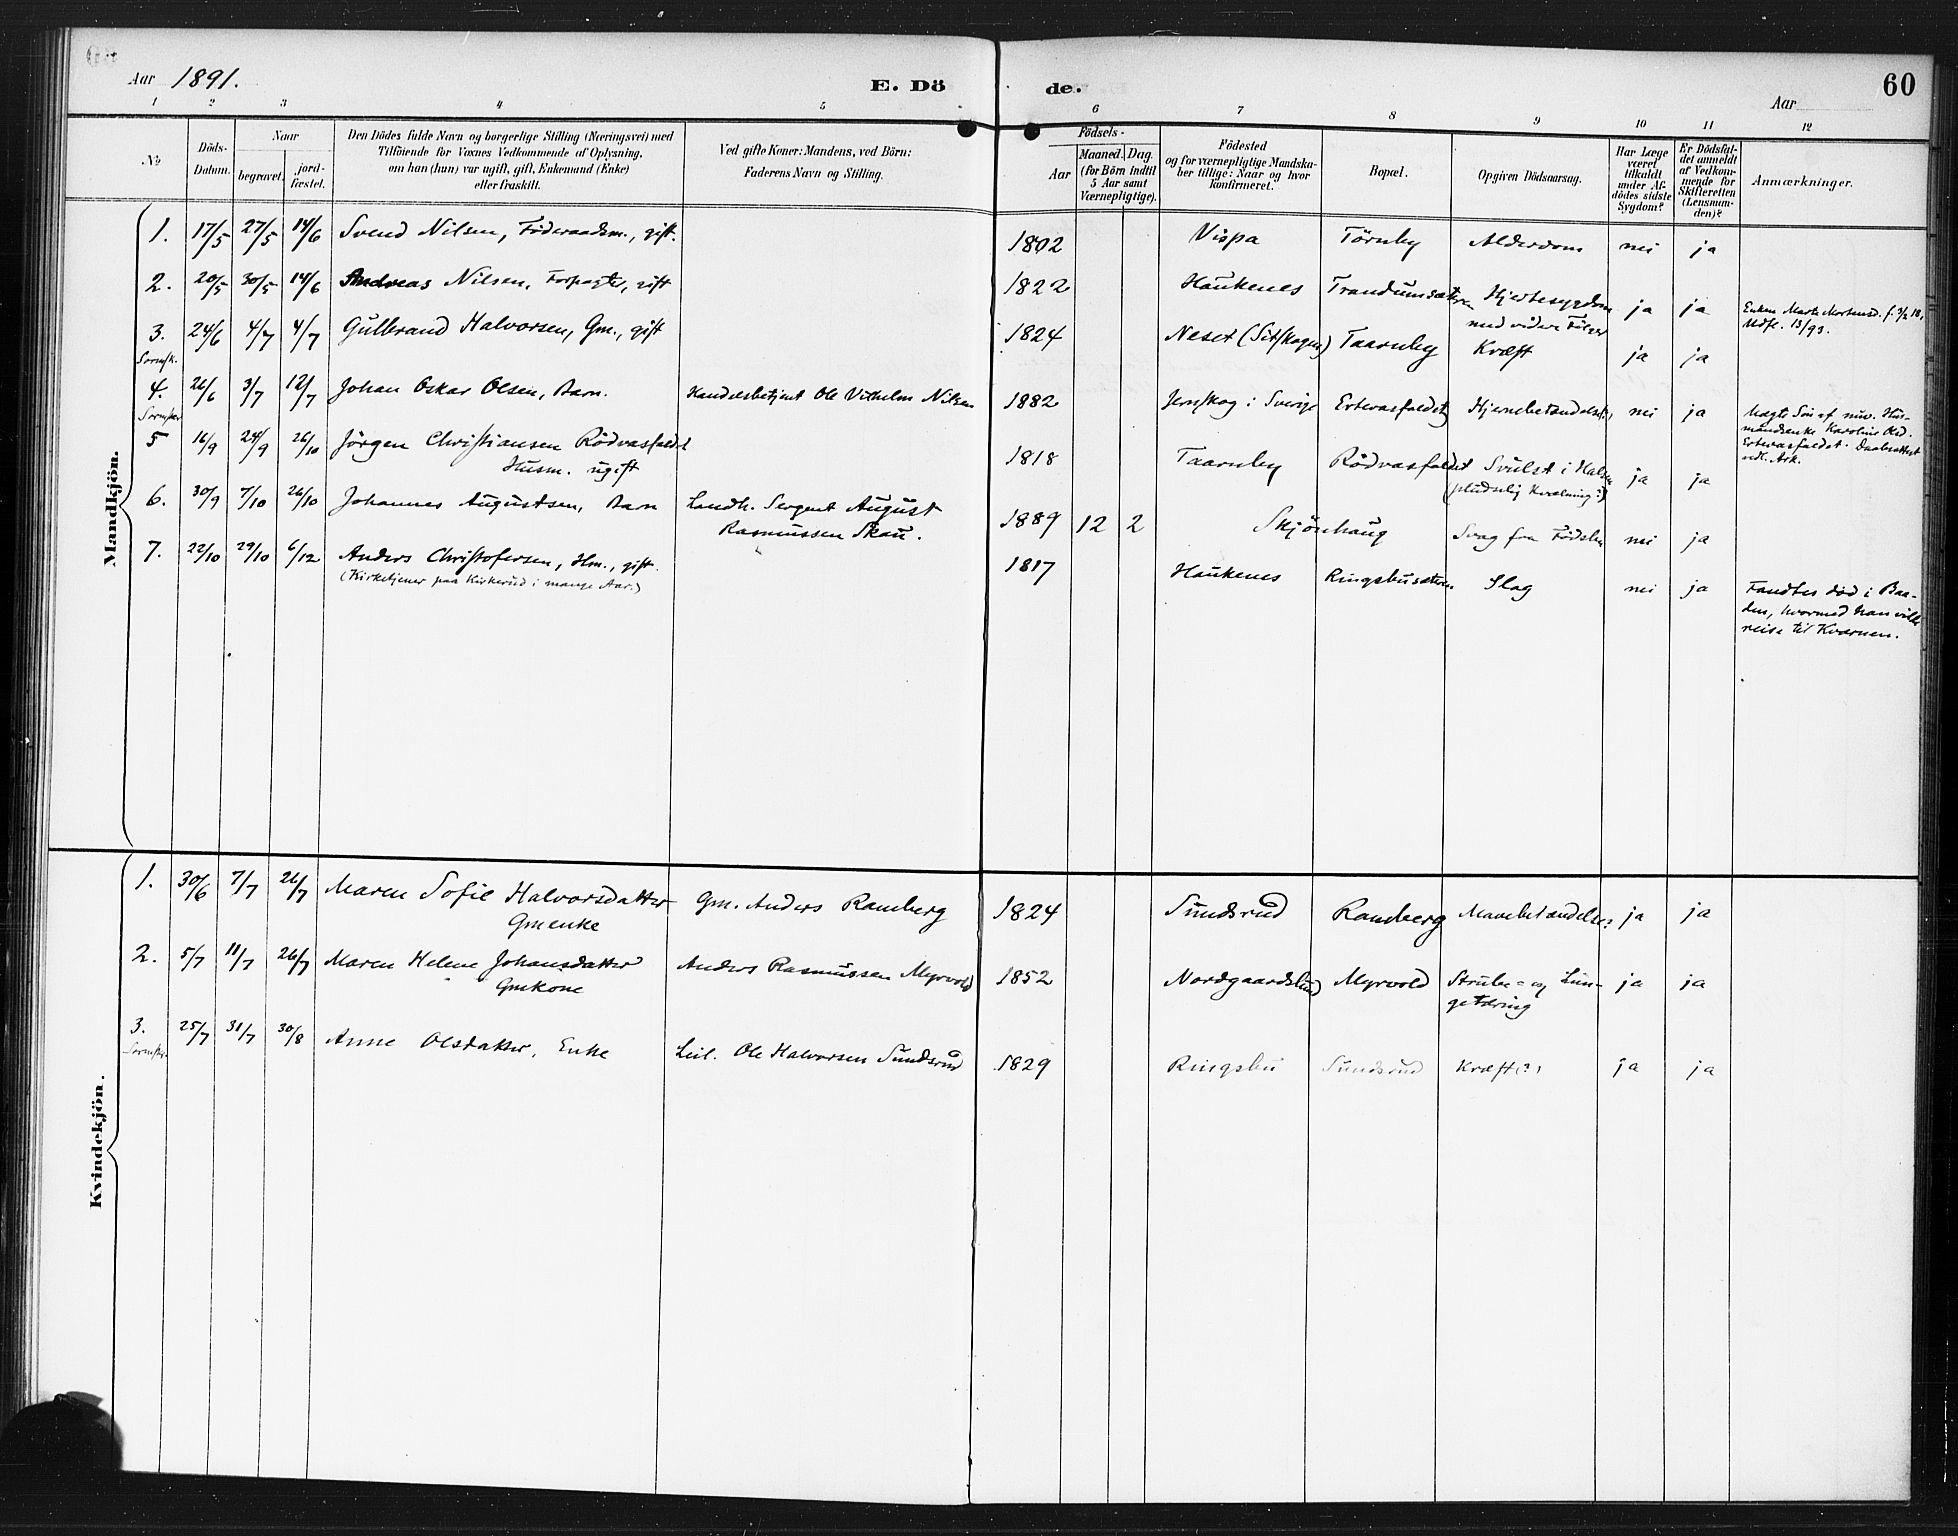 Aar 1891. E. Dö de. Aar 60
1 2 3 4 5 6 7 8 9 10 11 12
No
Döds-Datum.
Naar
begravet.
jord-fæstet.
Den Dödes fulde Navn og borgerlige Stilling (Næringsvei) med
Tilföiende for Voxnes Vedkommende af Oplysning,
om han (hun) var ugift, gift, Enkemand (Enke)
eller fraskilt.
Ved gifte Koner: Mandens, ved Börn:
Faderens Navn og Stilling.
Födsels-
Aar
Maaned. Dag.
(for Börn indtil
5 Aar samt
Værnepligtige).
Födested
og for værnepligtige Mandska-
ber tillige: Naar og hvor
konfirmeret.
Bopæl.
Opgiven Dödsaarsag.
Har Læge
været
tilkaldt
under Af-
dödes sidste
Sygdom?
Er Dödsfal-
det anmeldt
af Vedkom-
mende for
Skifteretten
(Lensman-
den)?
Anmærkninger.
Mandkjön.
1. 17/5 27/5 14/6 Svend Nilsen, Föderaadsm., gift. 1802 Vispa Törnby Alderdom nei ja
2. 20/5 30/5 14/6 Andreas Nilsen, Forpagter, gift 1822 Haukenes Trandumsæteren Hjertesygdom ja ja
med videre Følger
Enken Marte Mortensd. f. 3/2 18,
Udfl. 13/93.
3. 24/6 4/7 4/7 Gulbrand Halvorsen, Gm., gift 1824 Neset (Sitskogen) Taarnby Kræft ja ja
4. 26/6 3/7 12/7 Johan Oskar Olsen, Barn. Handelsbetjent Ole Vilhelm Nilsen 1882 Jernskog i Sverige Ertevasfaldet Hjernebetændelse nei ja
Uægte Søn af nuv. Hus-
mandsenke Karoline Olsd.
Ertevasfaldet. Daabsattest
vedl. Ark.
5 16/9 24/9 26/10 Jörgen Christiansen Rödvasfaldet
Husm. ugift 1818 Taarnby Rödvasfaldet Svulst i Halsen
(pludselig Kvælning?) ja ja
6. 30/9 7/10 26/10 Johannes Augustsen, Barn Landh. Sergent August
Rasmussen Skau. 1889 12 2 Skjönhaug Svag fra Fødslen nei ja
7. 22/10 29/10 6/12 Anders Christofersen, Hm., gift. 1817 Haukenes Ringsbusæteren Slag nei ja
(Kirketjener paa Kirkerud i mange Aar.)
Fandtes død i Baa-
den, hvormed han vilde
reise til Kværnen.
Kvindekjön.
1. 30/6 7/7 26/7 Maren Sofie Halvorsdatter
Gmenke Gm. Anders Ramberg 1824 Sundsrud Ramberg Mavebetændelse? ja ja
2. 5/7 11/7 26/7 Maren Helene Johansdatter
Gmkone Anders Rasmussen Myrvold 1852 Nordgaardslund Myrvold Strube- og Lun-
getæring ja ja
3. 25/7 31/7 30/8 Anne Olsdatter, Enke Leil. Ole Halvorsen Sundsrud 1829 Ringsbu Sundsrud Kræft(?) ja ja